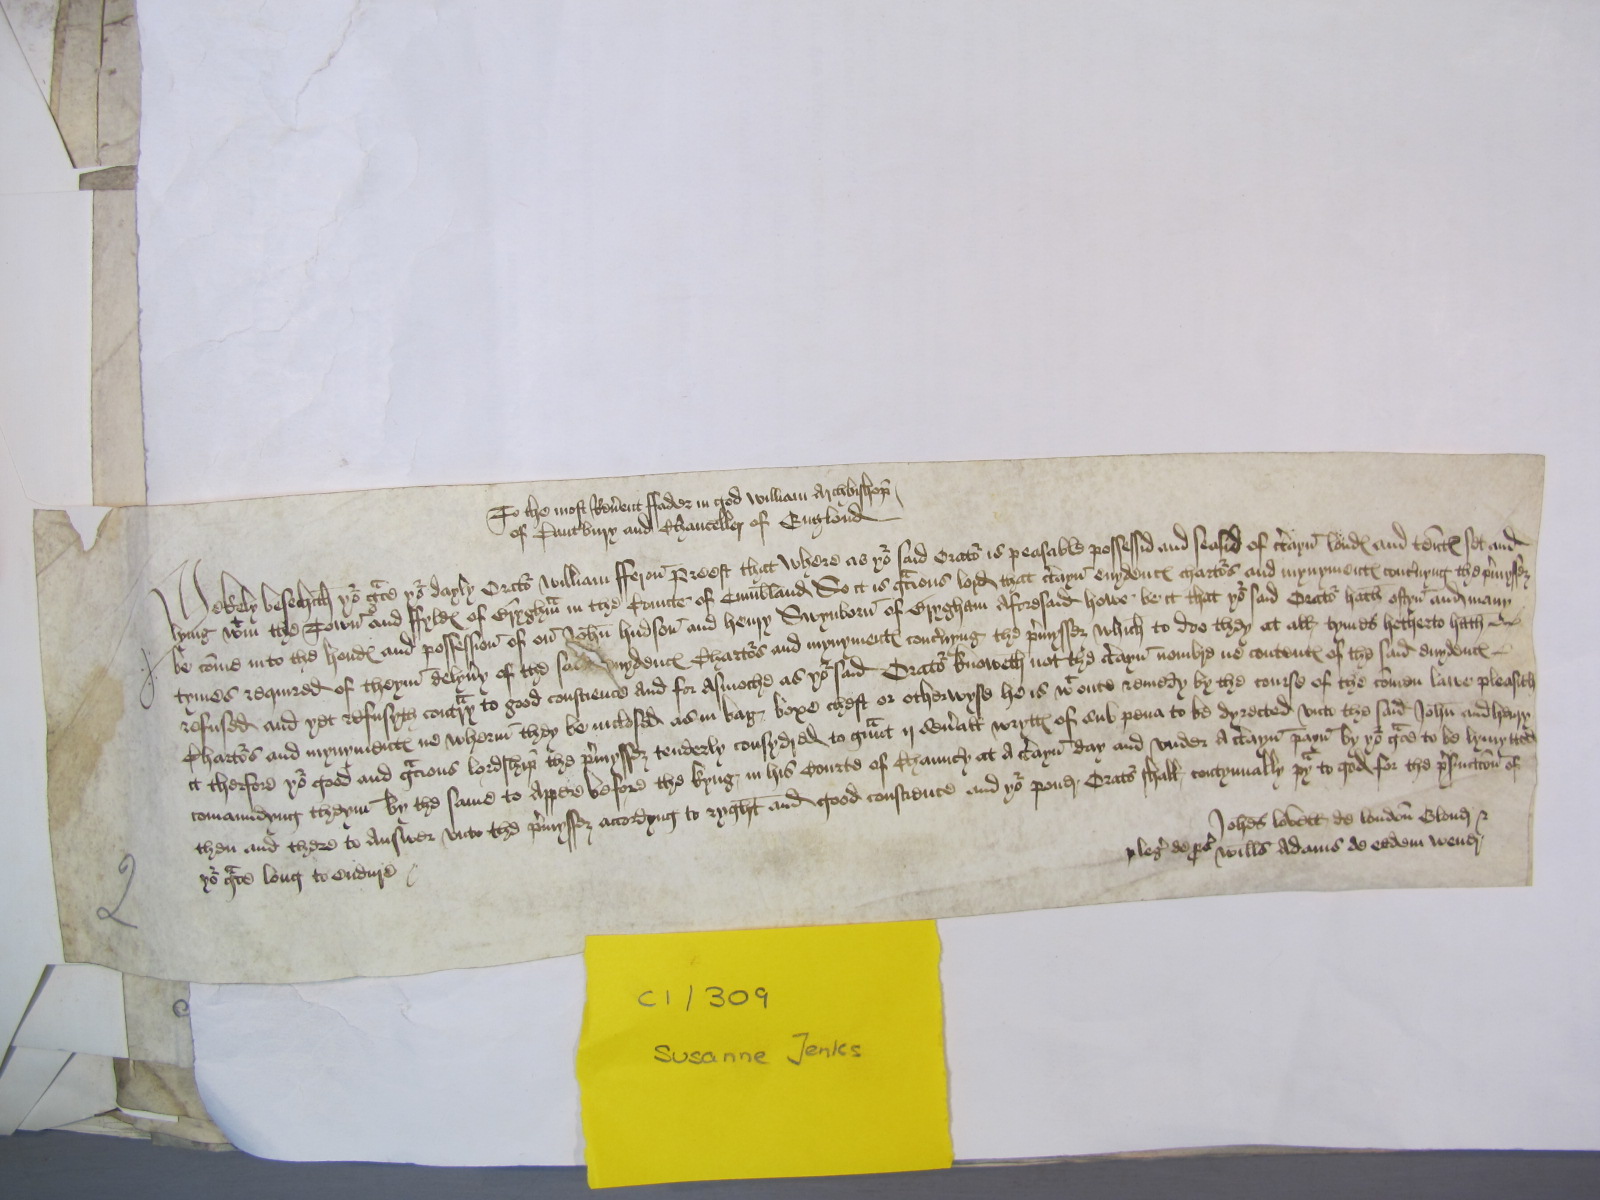 To the most Reu'ent ffader in god William Archbishop
of Cantbury and Chaunceller of Englond
Mekely besechith yor g'ce yor dayly Orator William fferou' Preest that Where as yor said Orator is peasable possessid and seasid of c'tayn londes and ten'tes set and
lying wtin the Town and ffyldes of Gryghm' in the Counte of Cumb'land So it is g'cious lord that c'tayn euydences chartors and mynymentes conc'nyng the p'myssez
be come into the hondes and possession of on John hudson and henry Swynborn of Grygham Aforesaid howe be it that yor said Orator hath oftyn and many
tymes required of theym delyu'y of the said euydences Chartors and mynymentes conc'nyng the p'myssez which to doo they at all tymes hetherto hath
refused and yet refusyth cont'ry to good conscience And for Asmoche as yor said Orator knoweth not the c'tayn nombre ne contentes of the said euydences
Chartors and mynymentes ne wherin they be inclosed as in bag boxe chest or otherwyse he is wt oute remedy by the course of the comen lawe pleasith
it therfore yor good and g'cious lordship the p'myssez tenderly consydred to g'unt ij seu'all wryttes of sub pena to be dyrected vnto the said John and henry
comaundyng theym by the same to Appere before the kyng in his Courte of Chauncery at A c'tayn day and vnder A c'tayn payn by yor g'ce to be lymytted
then and there to Answer vnto the p'myssez accordyng to ryght and good conscience and yor pouer Orator shall contynually p'y to god for the
yor g'ce long to endure
Johes lovett de london
pleg' de ps' Will's Adams de eadem
2
C1/309
Susanne Jenks